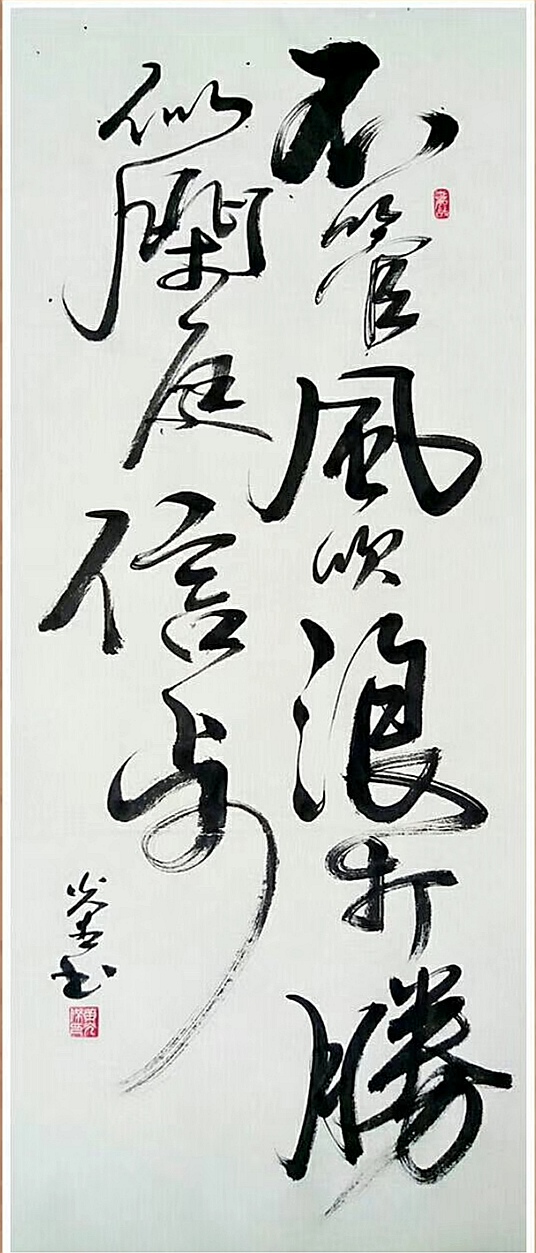 不管風吹浪打勝
似閑庭信步